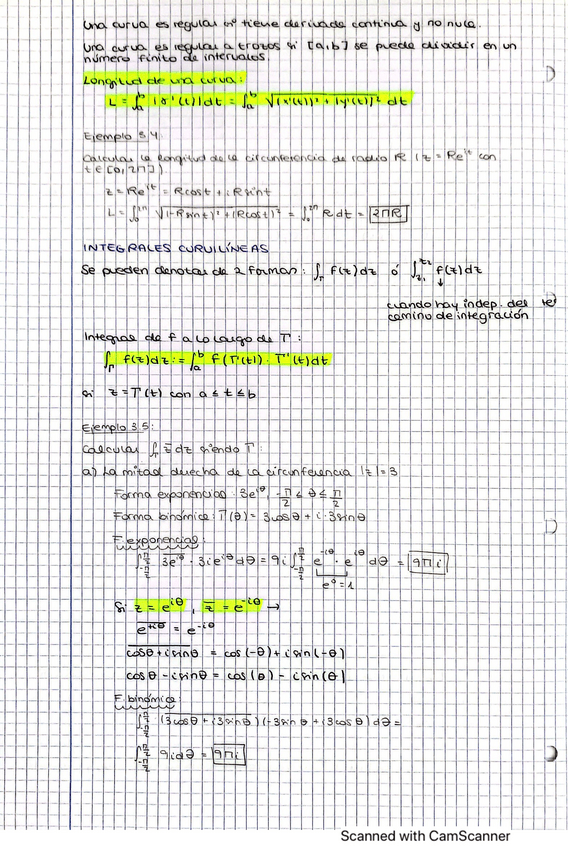 Una curva es regular si tiene derivada continua y no nula.
Una curva es regular a trozos si [a,b] se puede dividir en un
número finito de intervalos.
Longitud de una curva:
L = ∫_a^b |γ'(t)|dt = ∫_a^b √((x'(t))² + (y'(t))²) dt
Ejemplo 3.4
Calcular la longitud de la circunferencia de radio R (z = Re^{it} con
t ∈ [0,2π])
z = Re^{it} = Rcost + iRsint
L = ∫_0^{2π} √((-Rsint)² + (Rcost)²) = ∫_0^{2π} R dt = 2πR
INTEGRALES CURVILÍNEAS
Se pueden denotar de 2 formas: ∫_Γ f(z)dz ó ∫_{z₁}^{z₂} f(z)dz
↓
cuando hay indep. del
camino de integración
Integral de f a lo largo de Γ:
∫_Γ f(z)dz := ∫_a^b f(Γ(t)) · Γ'(t)dt
si z = Γ(t) con a ≤ t ≤ b
Ejemplo 3.5:
Calcular ∫_Γ z̅ dz siendo Γ:
a) La mitad derecha de la circunferencia |z| = 3
Forma exponencial: 3e^{iθ}, -π/2 ≤ θ ≤ π/2
Forma binómica: Γ(θ) = 3cosθ + i·3sinθ
F. exponencial:
∫_{-π/2}^{π/2} \overline{3e^{iθ}} · 3ie^{iθ} dθ = 9i ∫_{-π/2}^{π/2} e^{-iθ} · e^{iθ} dθ = 9πi
e⁰ = 1
Si z = e^{iθ}, z̅ = e^{-iθ} →
\overline{e^{iθ}} = e^{-iθ}
\overline{cosθ + isinθ} = cos(-θ) + isin(-θ)
cosθ - isinθ = cos(θ) - isin(θ)
F. binómica:
∫_{-π/2}^{π/2} \overline{(3cosθ + i3sinθ)}(-3sinθ + i3cosθ)dθ =
∫_{-π/2}^{π/2} 9idθ = 9πi
Scanned with CamScanner